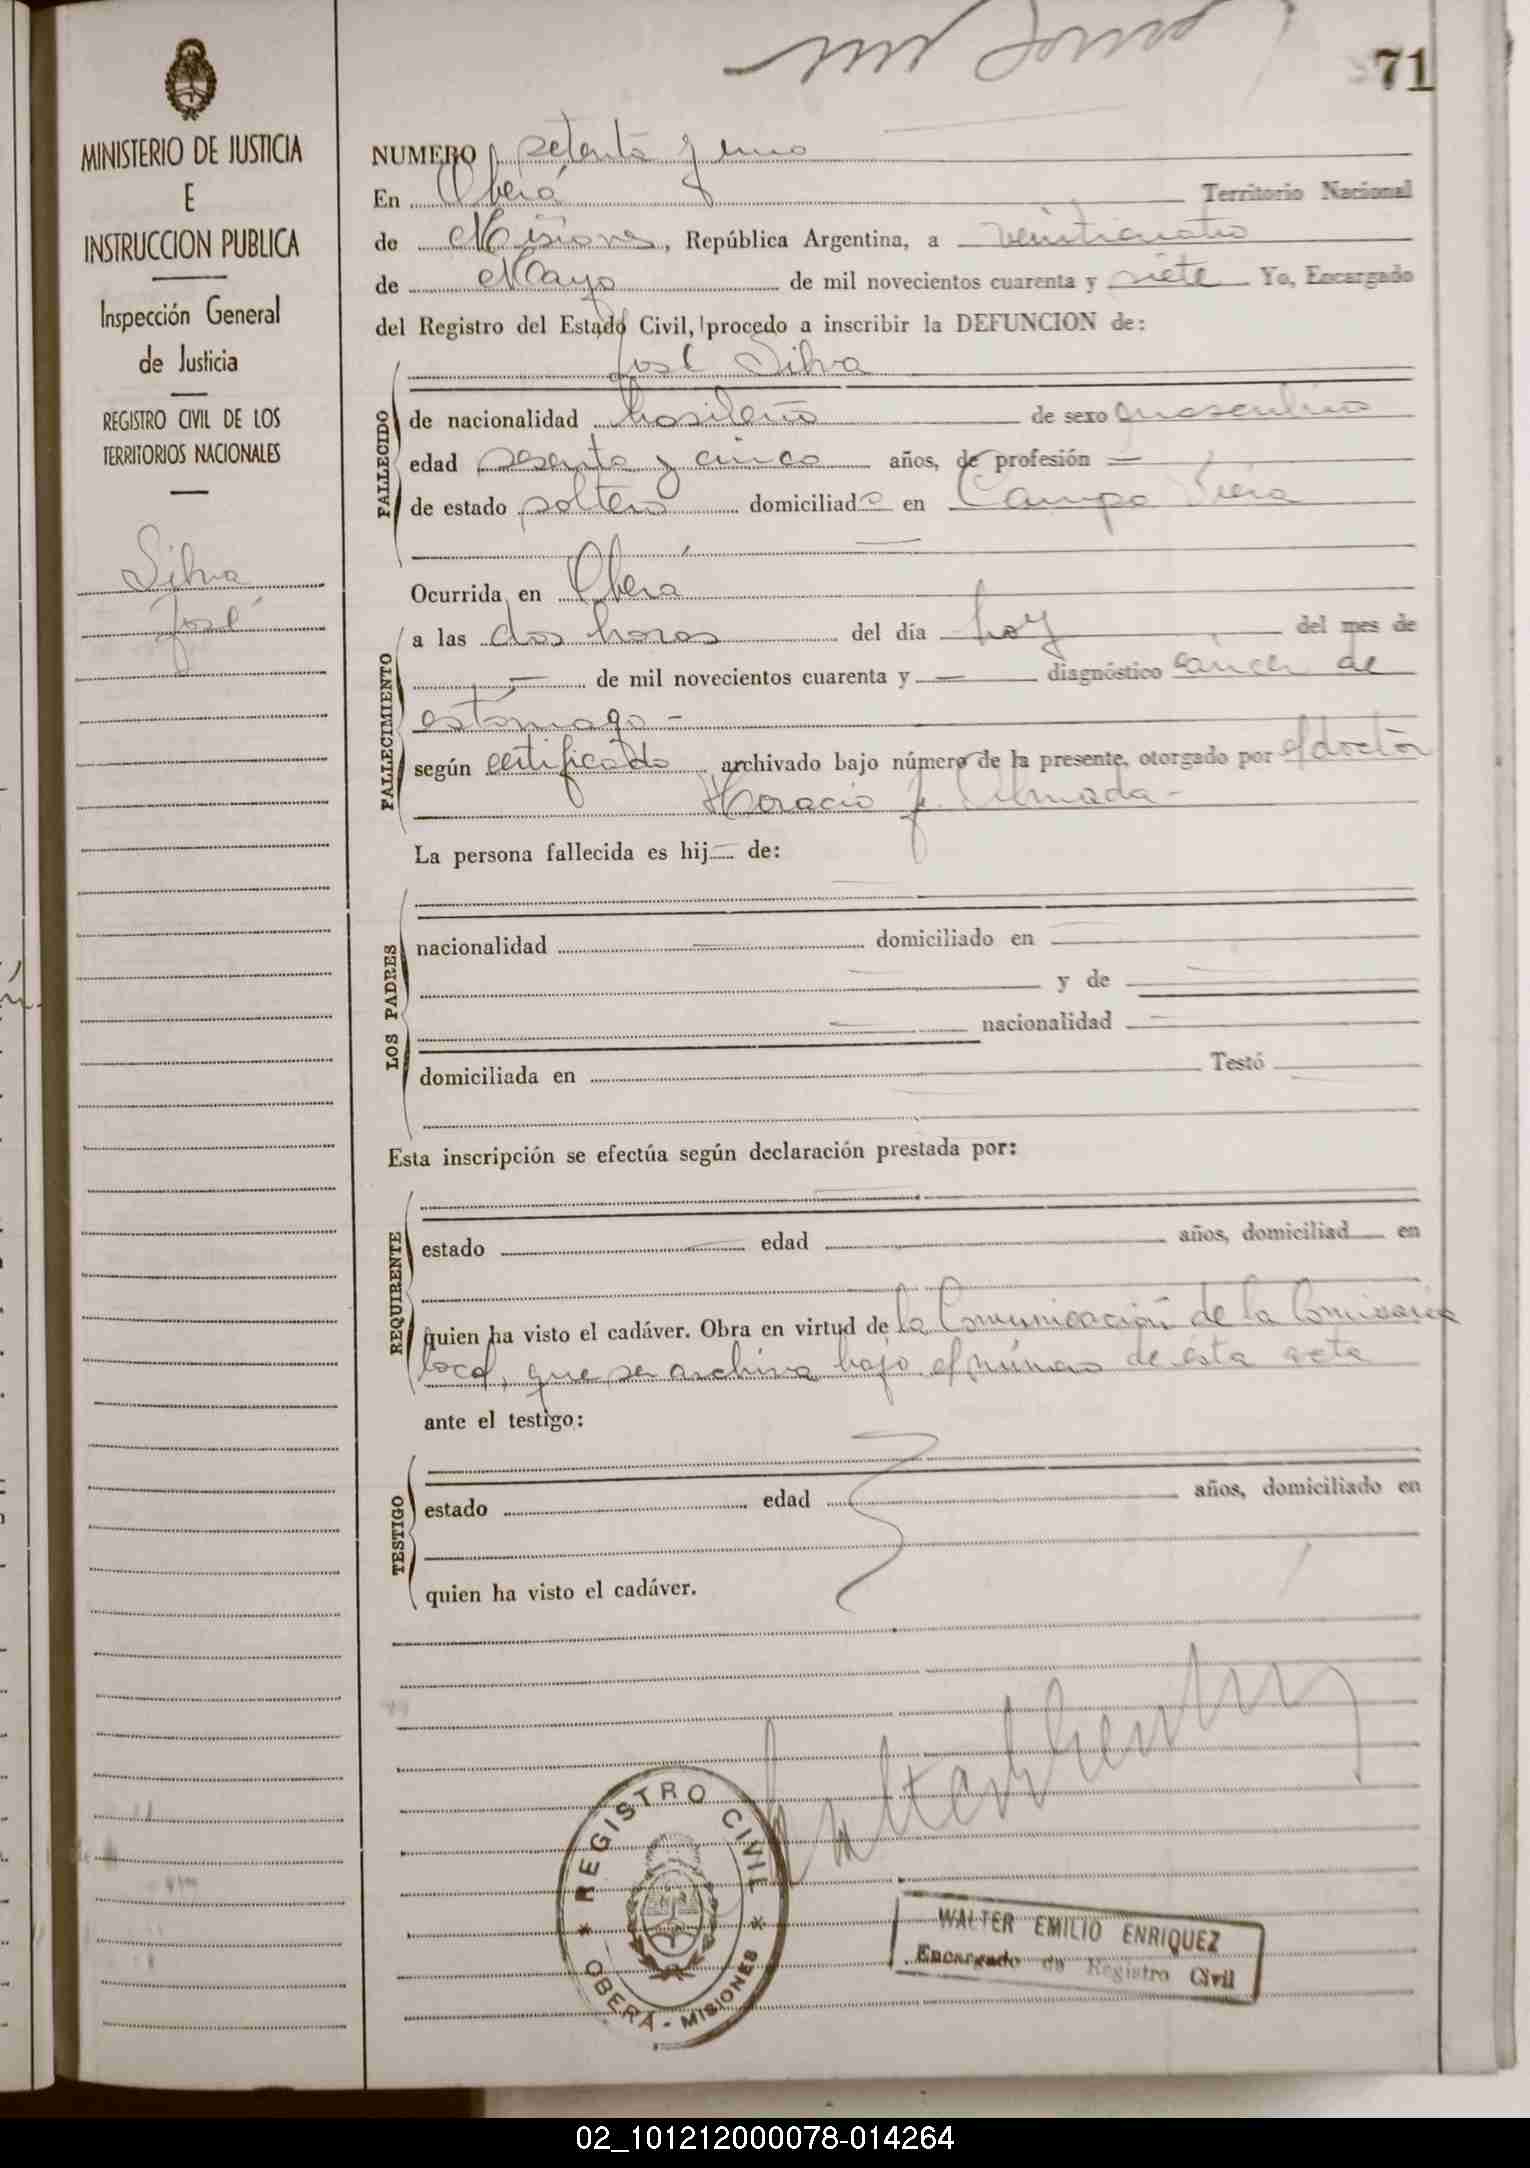 71
MINISTERIO DE JUSTICIA
E
INSTRUCCION PUBLICA
Inspección General
de Justicia
REGISTRO CIVIL DE LOS
TERRITORIOS NACIONALES
Silva
José
NUMERO setenta y uno
En Oberá Territorio Nacional
de Misiones, República Argentina, a veinticuatro
de Mayo de mil novecientos cuarenta y siete Yo, Encargado
del Registro del Estado Civil, procedo a inscribir la DEFUNCION de:
José Silva
FALLECIDO
de nacionalidad brasileño de sexo masculino
edad sesenta y cinco años, de profesión —
de estado soltero domiciliado en Campo Viera
Ocurrida en Oberá
FALLECIMIENTO
a las dos horas del día hoy del mes de
— de mil novecientos cuarenta y — diagnóstico cáncer de
estómago -
según certificado archivado bajo número de la presente, otorgado por el doctor
Horacio J. Almada -
La persona fallecida es hij— de:
LOS PADRES
nacionalidad — domiciliado en —
y de
nacionalidad —
domiciliada en Testó
Esta inscripción se efectúa según declaración prestada por:
REQUIRENTE
estado edad años, domiciliad en
quien ha visto el cadáver. Obra en virtud de la Comunicación de la Comisaría
local, que se archiva bajo el número de ésta acta
ante el testigo:
TESTIGO
estado edad años, domiciliado en
quien ha visto el cadáver.
REGISTRO CIVIL
* OBERÁ - MISIONES *
WALTER EMILIO ENRIQUEZ
Encargado de Registro Civil
02_101212000078-014264